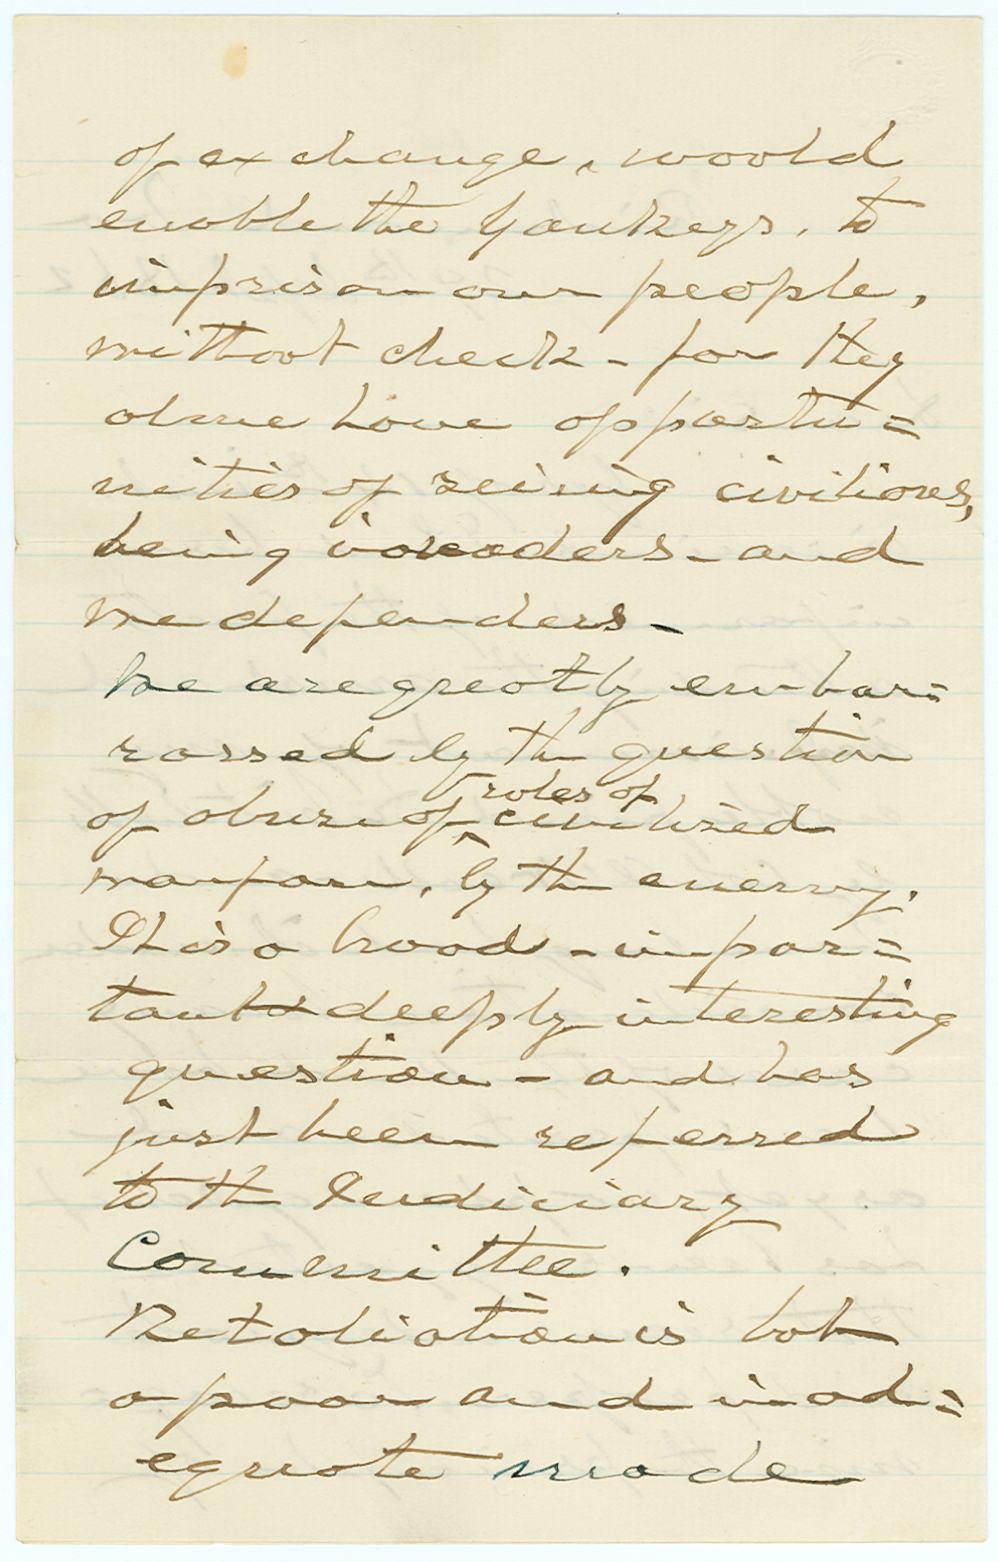 of exchange, would
enable the Yankeys, to
imprison our people,
without check - for they
alone have opportu=
nities of seizing civilians,
being invaders - and
we defenders -
We are greatly embar=
rassed by the question
of abuse of rules of civilized
warfare, by the enemy.
It is a broad - impor=
tant & deeply interesting
question - and has
just been referred
to the Judiciary
Committee.
Retaliation is but
a poor and inad=
equate mode